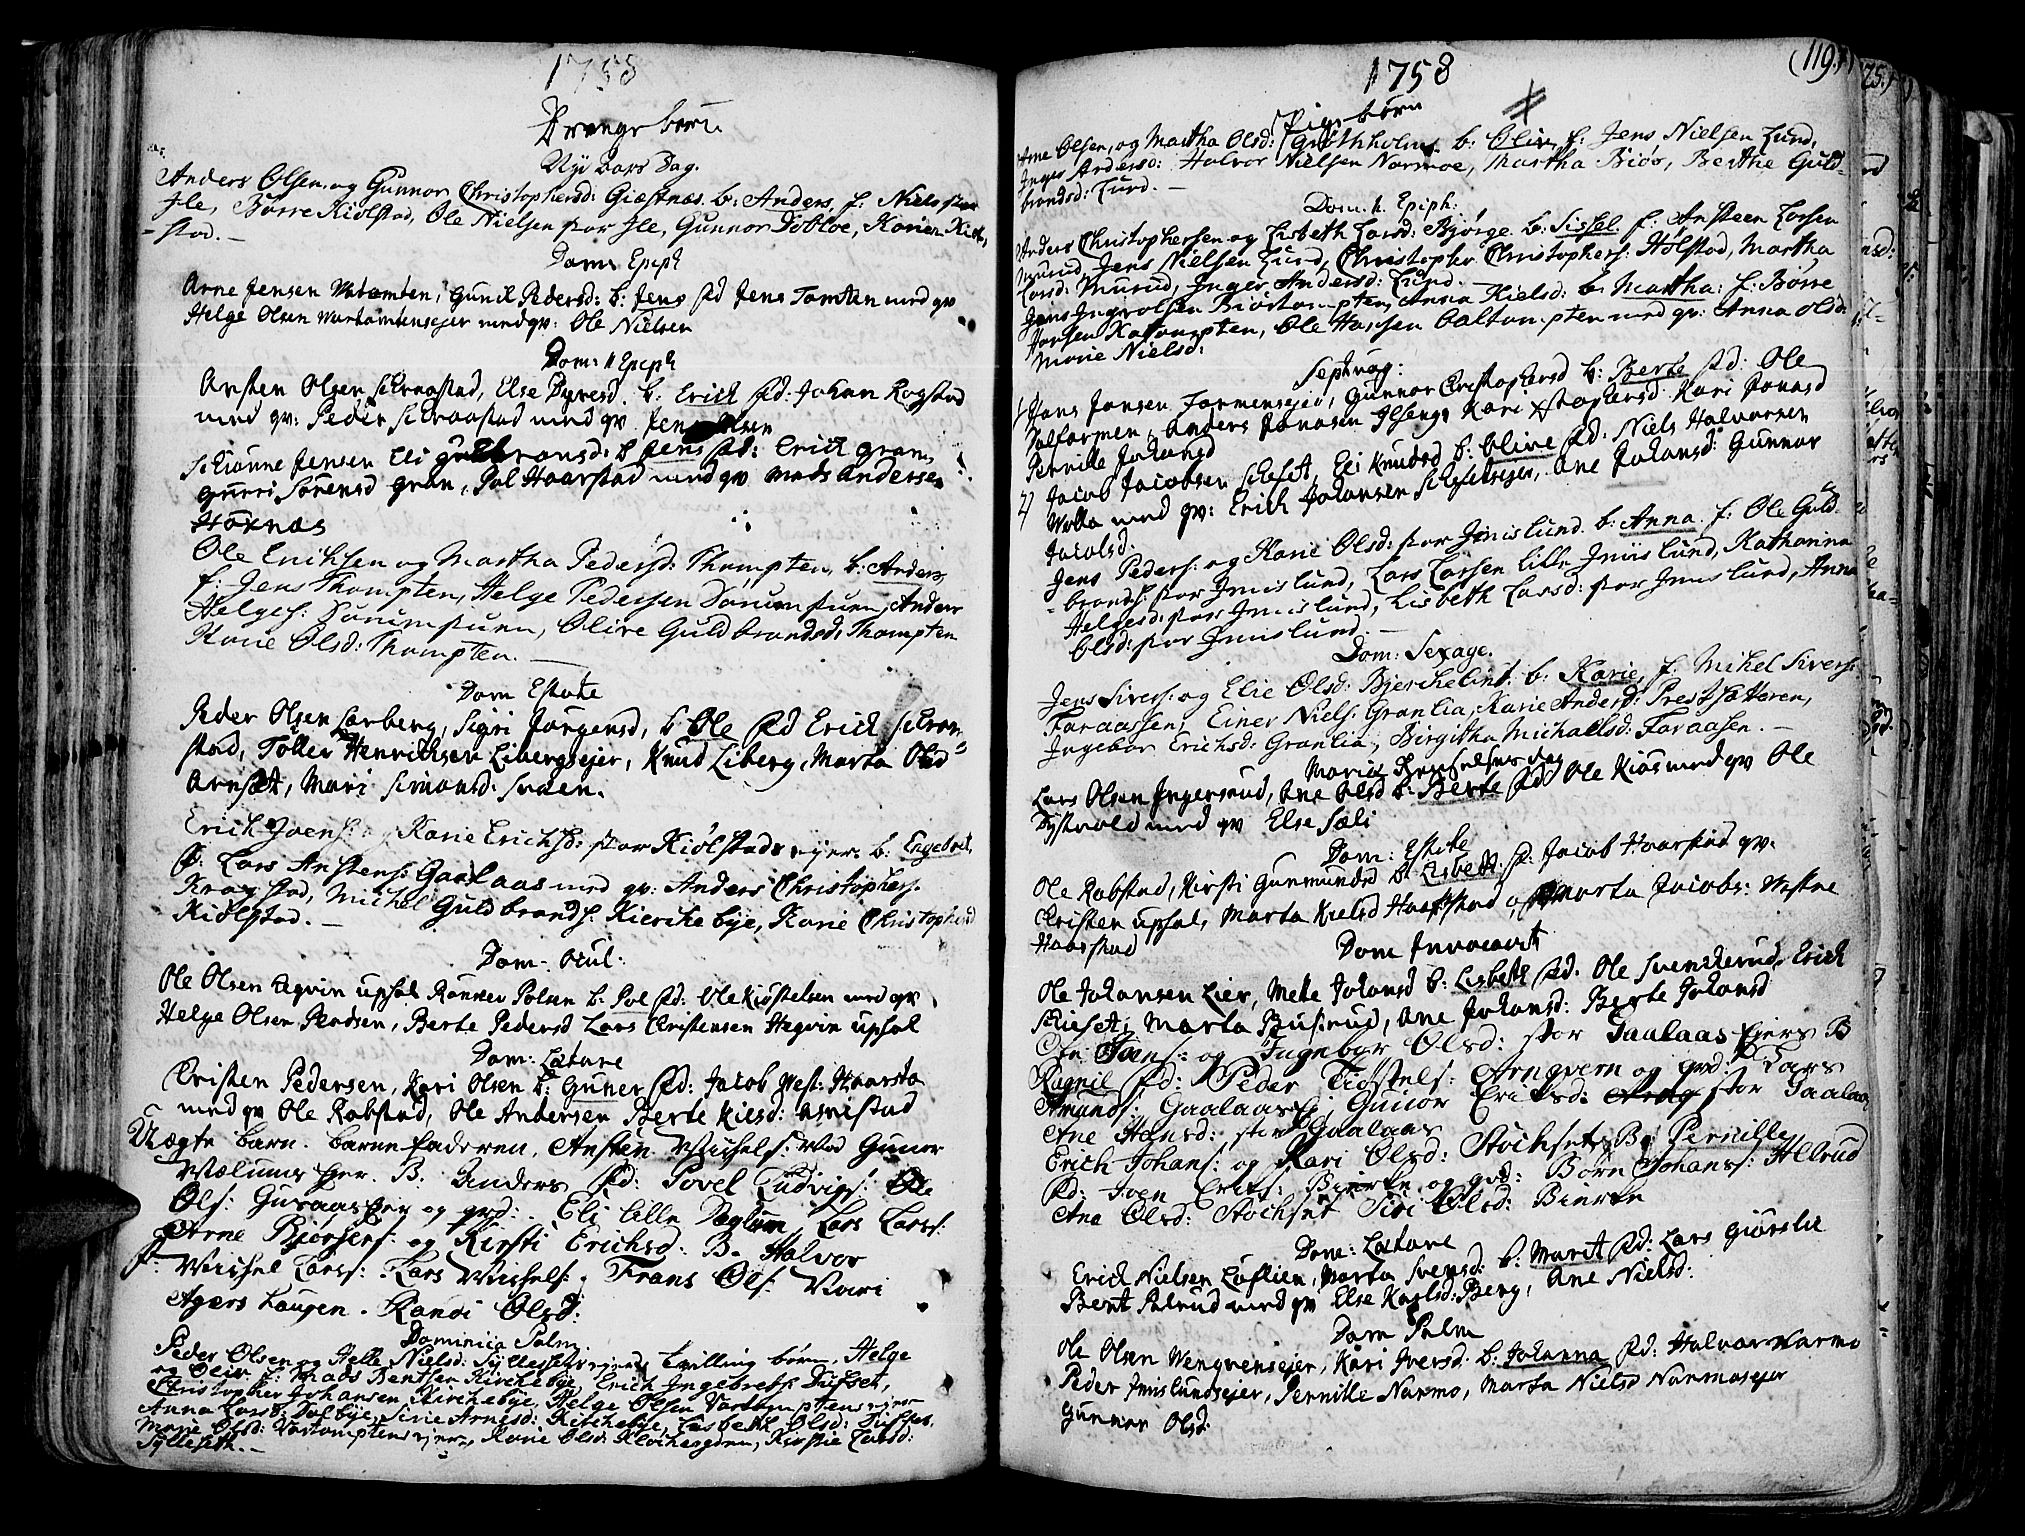 1758
Drenge børn
Nyt Aars Dag.
Anders Olsen, og Gunnor Christophersd: Giestnæs. b: Anders, f: Niels stor
Jle, Børre Kiølstad, Ole Nielsen stor Jle, Gunnor Dobloe, Karen Kiøl-
stad. -
Dom: Epiph
Arne Jensen, Gunil Pedersd: b: Jens fd Jens Tomten med qv
Helge Olsen Wartomtenseyer med qv: Ole Nielsen
Dom: 1 Epiph
Arsten Olsen Schraastad, Else Dyresd. b: Erich fd: Johan Rogstad
med qv: Peder Schraastad med qv Jens Olsen
Jensen Eli Gulbransd: b Jens fd: Erich gran,
Gurri Sørensd gran, Pol Haarstad med qv Mads Andersen
Hoxnæs
Ole Erichsen og Martha Pedersd: Thompten, b: Anders,
f: Jens Thompten, Helge Pedersen Sørumstuen, Anders
Helges: Sørumstuen, Olive Guldbrandsd: Thompten
Karie Olsd: Thompten. -
Dom Estote
Peder Olsen Larberg, Sigri Jørgensd, b Ole fd Erich Schraa-
stad, Tøller Henrichsen Libergsejer, Knud Liberg, Marta Olsd
Arnset, Mari Simonsd: Svaen.
Erich Joens: og Karie Erichsd: stor Kiølstads eyer. b: Engebret,
f: Lars Anstens: Gaalaas med qv: Anders Christophers:
Kragstad, Michel Guldbrands: Kierchebye, Karie Christophersd
Kiølstad. -
Dom: Ocul:
Ole Olsen Hegvin uphol Ronner Polsen b: Pol fd: Ole Kiøstelsen med qv
Helge Olsen, Berte Pedersd Lars Christensen Hegvin uphol
Dom: Lætare
Cristen Pedersen, Kari Olsen b: Guner fd: Jacob West: Haarsta
med qv Ole Rabstad, Ole Andersen Berte Kiesd:
Uægte barn. barne faderen, Ansten Michels: Mod Gunor
Mælums Eyer. B: Anders fd: Povel Ludvigs: Ole
Ols: Guraas Eyer og qvd: Eli lille Dæglum, Lars Larss:
Arne Bjørsens: og Kirsti Erichsd: B. Halvor
f: Michel Larss: Lars Michels: Frans Ols: Mari
Agers haugen. Randi Olsd:
Dominica Palm.
Peder Olsen og Helle Nielsd: Syllesethseyer, Tvilling børn, Helge
og Oliv f: Mads Bentsen Kirchebye Erich Ingebrets: Dufset,
Christopher Johansen Kirchebye, Helge Olsen Vartomptenseyer
Anna Larsd: Dalbye, Sirie Arnesd: Kirchebye, Lisbeth Olsd:
Marie Olsd: Vartomptenseyer, Karie Olsd: Klochergden, Kirstie Larsd:
Sylleseth. -
1758
(119.)
Pige børn
Arne Olsen, og Martha Olsd: b: Olive f: Jens Nielsen Lund,
Inger Andersd: Halvor Nielsen Narmoe, Martha Biør, Berthe Guld-
brandsd: Lund. -
Dom. 1. Epiph:
Anders Christophersen og Lisbeth Larsd: Bjørge b: Sissel. f: Ansteen Larsen
Murud, Jens Nielsen Lund, Christopher Christophers: Hølstad, Martha
Larsd: Murud, Inger Andersd: Lund. -
Jens Ingvolsen Biørtompten, Anna Kielsd: b: Martha: f: Børre
Jonsen Katompten, Ole Hansen Caltompten med qv: Anna Olsd:
Marie Nielsd:
Septuag:
1) Jens Jonsen Formenseyer, Gunnor Christophersd b: Berte fd: Ole
Dolformen, Anders Jonasen Ilseng, Kari Xstophersd: Kari Jonasd
Pernille Johansd
2) Jacob Jacobsen Schefet, Eli Knudsd b: Olive fd: Niels Halvorsen
Molla med qv: Erich Johansen Schefetsejer, Ane Johansd: Gunnor
Jacobsd:
Jens Peders: og Karie Olsd: stor Jmislund. b: Anna. f: Ole Guld-
brands: stor Jmislund, Lars Larsen lille Jmislund, Katharina
Helgesd: stor Jmislund, Lisbeth Larsd: stor Jmislund, Anna
Olsd: stor Jmislund. -
Dom: Sexage.
Jens Sivers: og Elie Olsd: Bjerchelind: b: Karie, f: Mihel Sivers:
Faraasen, Einer Niels: Granlia, Karie Andersd: Prestsætteren,
Jngebor Erichsd: Granlia, Birgitha Michaelsd: Faraasen. -
Mariæ Renselses dag
Lars Olsen Jngersrud, Ane Olsd b: Berte fd: Ole Kiøs med qv Ole
Dystvold med qv Else Sæli
Dom: Estote
Ole Rabstad, Kirsti Gunmundsd b: Lisbeth fd: Jacob Haarstad qv.
Cristen uphol, Marta Kielsd Haarstad og Marta Jacobs: Westre
Haarstad
Dom Jnvocavit
Ole Johansen Lier, Mette Johansd b: Lisbeth fd: Ole Svenskerud, Erich
Schieset, Marta Busrud, Ane Johansd: Berte Johansd
Joens: og Ingebor Olsd: stor Gaalaas Eyers B
Ragnil fd: Peder Kiøstels: Arnqvern og qvd: Lars
Amunds: Gaalaas Ej: Gunor Ericksd: stor Gaalaas
Ane Hansd: stor Gaalaas
Erich Johans: og Kari Olsd: Stochset, B: Pernille
fd: Joen Erics: Bierke og qvd: Børn Johans: Hellrud
Ane Olsd: Stochset Siri Olsd: Bierke
Dom: Lætare
Erich Nielsen Løflien, Marta Svensd: b: Marit fd: Lars Giørslie
Bert Palrud med qv Else Karlsd: Berg, Ane Nielsd:
Dom Palm
Ole Olsen Wengvensejer, Kari Iversd: b: Johanna fd: Halvor Narmo
Peder Jmislundsejer, Pernille Narmo, Marta Nielsd Narmosejer
Gunnor Olsd: